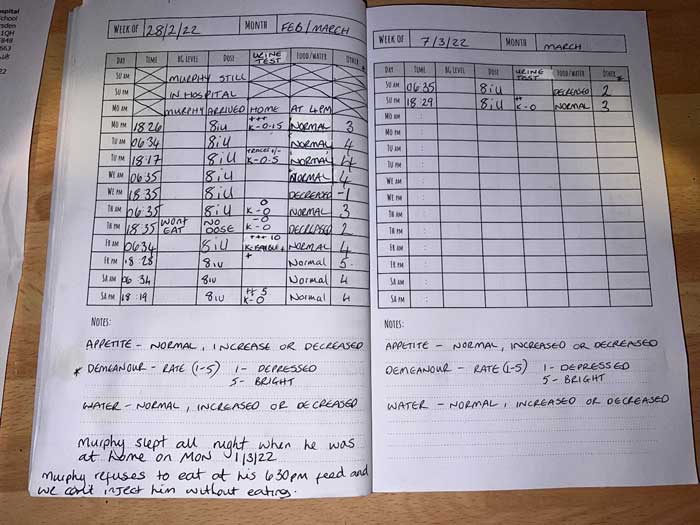 spital
chool
rsden
1QH
848
663
.uk
22
WEEK OF 28/2/22 MONTH FEB/MARCH
DAY TIME BG LEVEL DOSE URINE TEST FOOD/WATER OTHER *
SU AM MURPHY STILL
SU PM IN HOSPITAL
MO AM MURPHY ARRIVED HOME AT 4PM
MO PM 18:26 8iu +++ K-0.15 NORMAL 3
TU AM 06:34 8iu NORMAL 4
TU PM 18:17 8iu TRACES +/- K-0.5 NORMAL 4
WE AM 06:35 8iu NORMAL 4
WE PM 18:35 8iu DECREASED -1
TH AM 06:35 8iu 0 K-0 NORMAL 3
TH PM 18:35 WONT EAT NO DOSE -0 K-0 DECREASED 2
FR AM 06:34 8iu +++ 10 NORMAL 4
FR PM 18:28 8iu + Normal 5
SA AM 06:34 8iu Normal 4
SA PM 18:19 8iu ++ 5 K-0 Normal 4
NOTES:
APPETITE - NORMAL, INCREASE OR DECREASED
* DEMEANOUR - RATE (1-5) 1- DEPRESSED
5- BRIGHT
WATER - NORMAL, INCREASED OR DECREASED
Murphy slept all night when he was
at home on MON 1/3/22
Murphy refuses to eat at his 630pm feed and
we can't inject him without eating.
WEEK OF 7/3/22 MONTH MARCH
DAY TIME BG LEVEL DOSE URINE TEST FOOD/WATER OTHER *
SU AM 06:35 8iu DECREASED 2
SU PM 18:29 8iu ++ K-0 NORMAL 3
MO AM :
MO PM :
TU AM :
TU PM :
WE AM :
WE PM :
TH AM :
TH PM :
FR AM :
FR PM :
SA AM :
SA PM :
NOTES:
APPETITE - NORMAL, INCREASED OR DECREASED
DEMEANOUR - RATE (1-5) 1- DEPRESSED
5- BRIGHT
WATER - NORMAL, INCREASED OR DECREASED